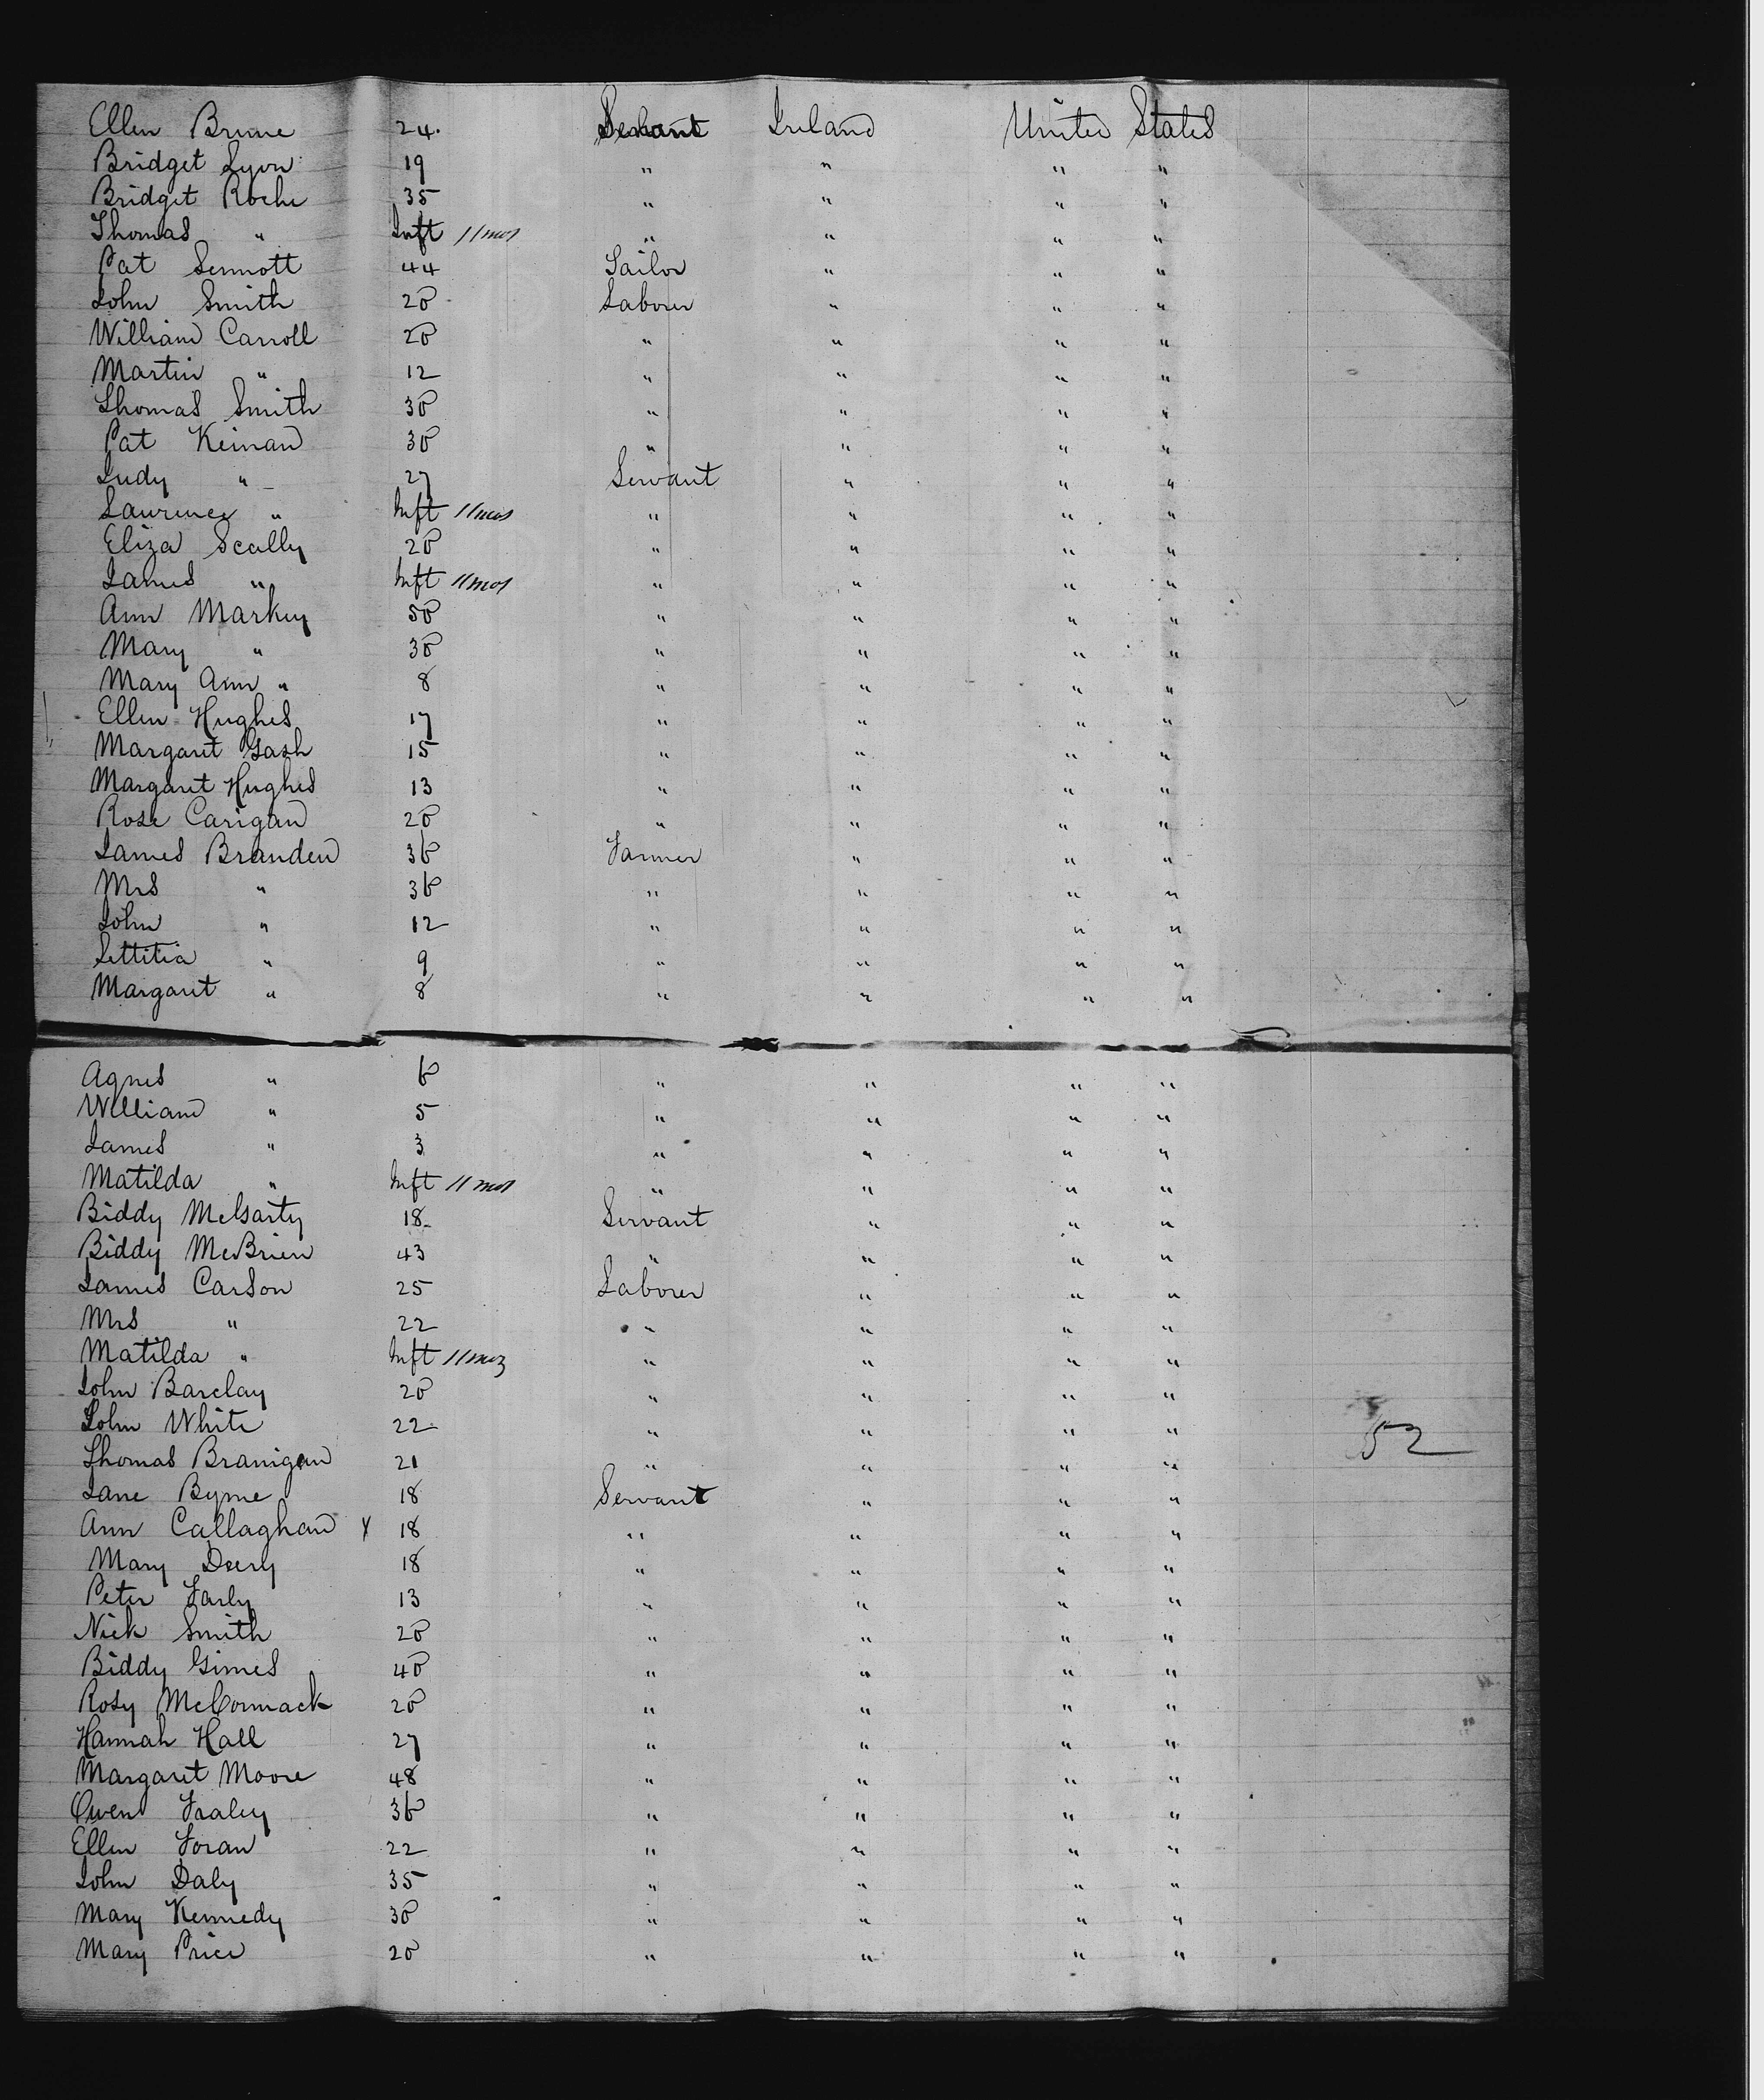 Ellen Brine 24. Servant Ireland United States
Bridget Lyon 19 " " " "
Bridget Roche 35 " " " "
Thomas " Inft 11mos " " " "
Pat Sennott 44 Sailor " " "
John Smith 20 Laborer " " "
William Carroll 20 " " " "
Martin " 12 " " " "
Thomas Smith 30 " " " "
Pat Keinan 30 " " " "
Judy " 27 Servant " " "
Laurence " Inft 11mos " " " "
Eliza Scally 20 " " " "
James " Inft 11mos " " " "
Ann Markey 50 " " " "
Mary " 30 " " " "
Mary Ann " 8 " " " "
Ellen Hughes 17 " " " "
Margaret Gash 15 " " " "
Margaret Hughes 13 " " " "
Rose Carigan 20 " " " "
James Branden 36 Farmer " " "
Mrs " 36 " " " "
John " 12 " " " "
Lettitia " 9 " " " "
Margaret " 8 " " " "
Agnes " 6 " " " "
William " 5 " " " "
James " 3 " " " "
Matilda " Inft 11mos " " " "
Biddy McGarty 18 Servant " " "
Biddy McBrien 43 " " " "
James Carson 25 Laborer " " "
Mrs " 22 " " " "
Matilda " Inft 11mos " " " "
John Barclay 20 " " " "
John White 22 " " " "
52
Thomas Branigan 21 " " " "
Jane Byrne 18 Servant " " "
Ann Callaghan x 18 " " " "
Mary Deery 18 " " " "
Peter Farly 13 " " " "
Nick Smith 20 " " " "
Biddy Gimes 40 " " " "
Rosy McCormack 20 " " " "
Hannah Hall 27 " " " "
Margaret Moore 48 " " " "
Owen Fraley 36 " " " "
Ellen Foran 22 " " " "
John Daly 35 " " " "
Mary Kennedy 30 " " " "
Mary Price 20 " " " "